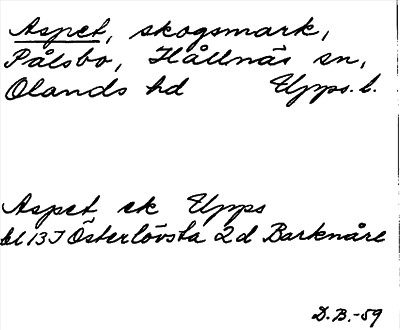 Aspet, skogsmark,
Pålsbo, Hållnäs sn,
Olands hd Upps. l.
Aspet ek Upps
bl 13 I Österlövsta 2 d Barknåre
D.B.-59